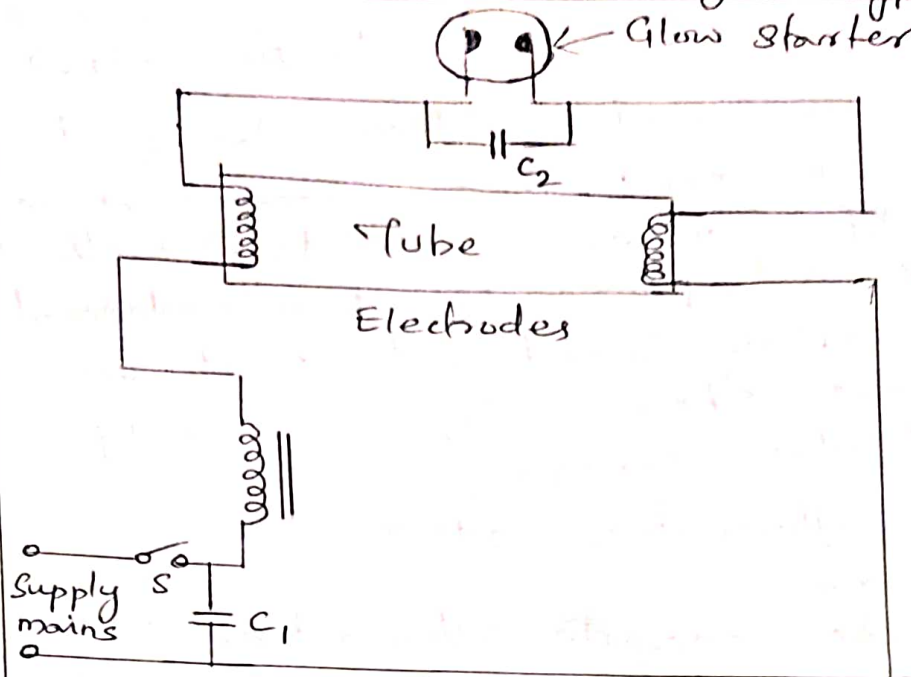 Glow starter
C2
Tube
Electrodes
S
Supply
mains
C1